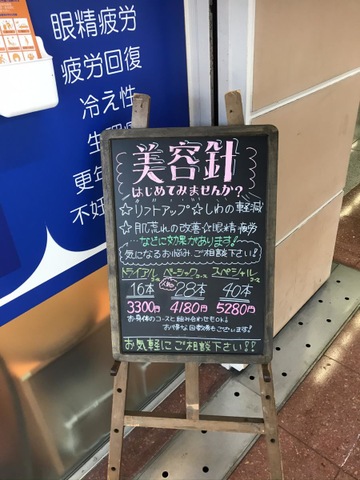 眼精疲労
疲労回復
冷え性
美容針
はじめてみませんか?
☆リフトアップ☆しわの軽減
☆肌荒れの改善☆眼精疲労
…などに効果があります!
気になるお悩み、ご相談下さい!!
トライアルコース ベーシックコース スペシャルコース
16本 28本 40本
3300円 4180円 5280円
お身体のコースと組み合わせもOK♪
お得な回数券もございます!
お気軽にご相談下さい!!